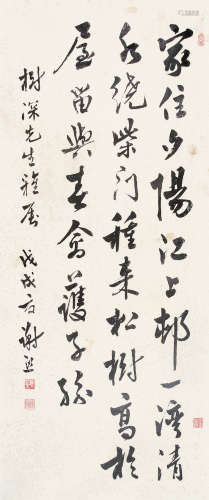 家住夕陽江上邨一灣清
水繞柴門種来松樹高於
屋留與春禽護子孫
樹深先生雅屬 戊戌 謝